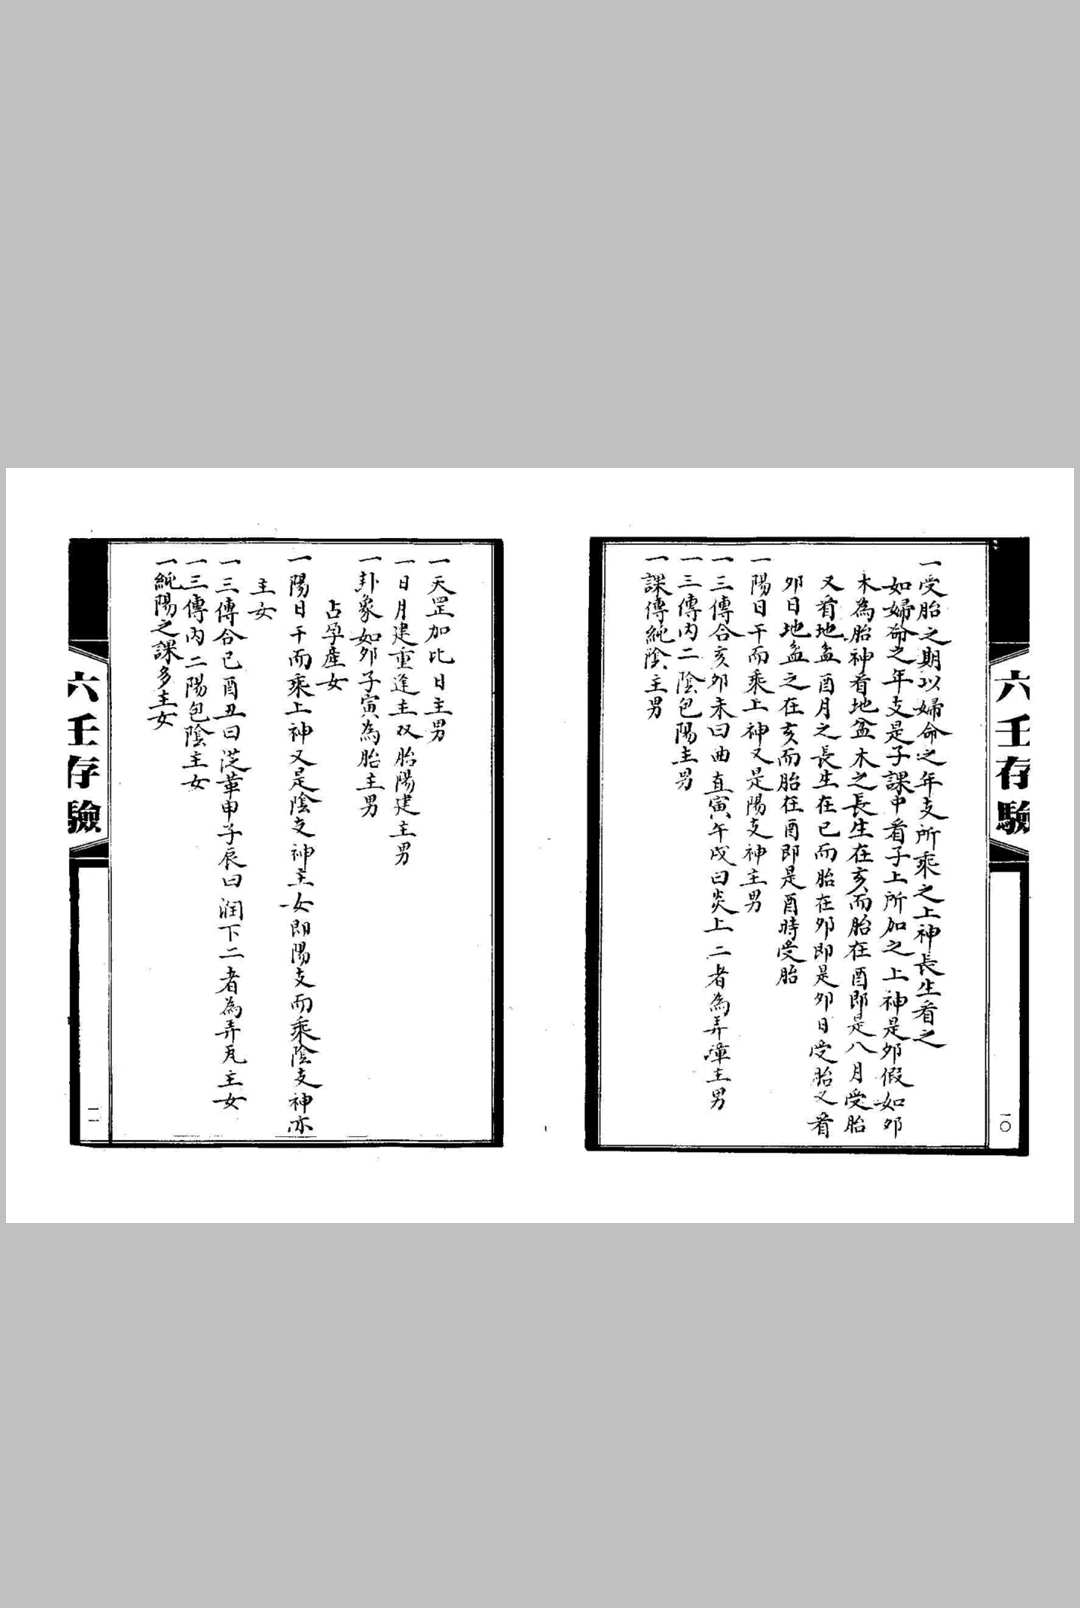 六壬存驗
一受胎之期以婦命之年支所乘之上神長生看之
如婦命之年支是子課中看子上所加之上神是卯假如卯
木為胎神看地盆木之長生在亥而胎在酉即是八月受胎
又看地盆酉月之長生在巳而胎在卯即是卯日受胎又看
卯日地盆之在亥而胎在酉即是酉時受胎
一陽日干而乘上神又是陽支神主男
一三傳合亥卯未曰曲直寅午戌曰炎上二者為弄璋主男
一三傳內二陰包陽主男
一課傳純陰主男
一〇
一天罡加比日主男
一日月建重逢主双胎陽建主男
一卦象如卯子寅為胎主男
占孕產女
一陽日干而乘上神又是陰支神主女即陽支而乘陰支神亦
主女
一三傳合巳酉丑曰從革申子辰曰潤下二者為弄瓦主女
一三傳內二陽包陰主女
一純陽之課多主女
六壬存驗
一一